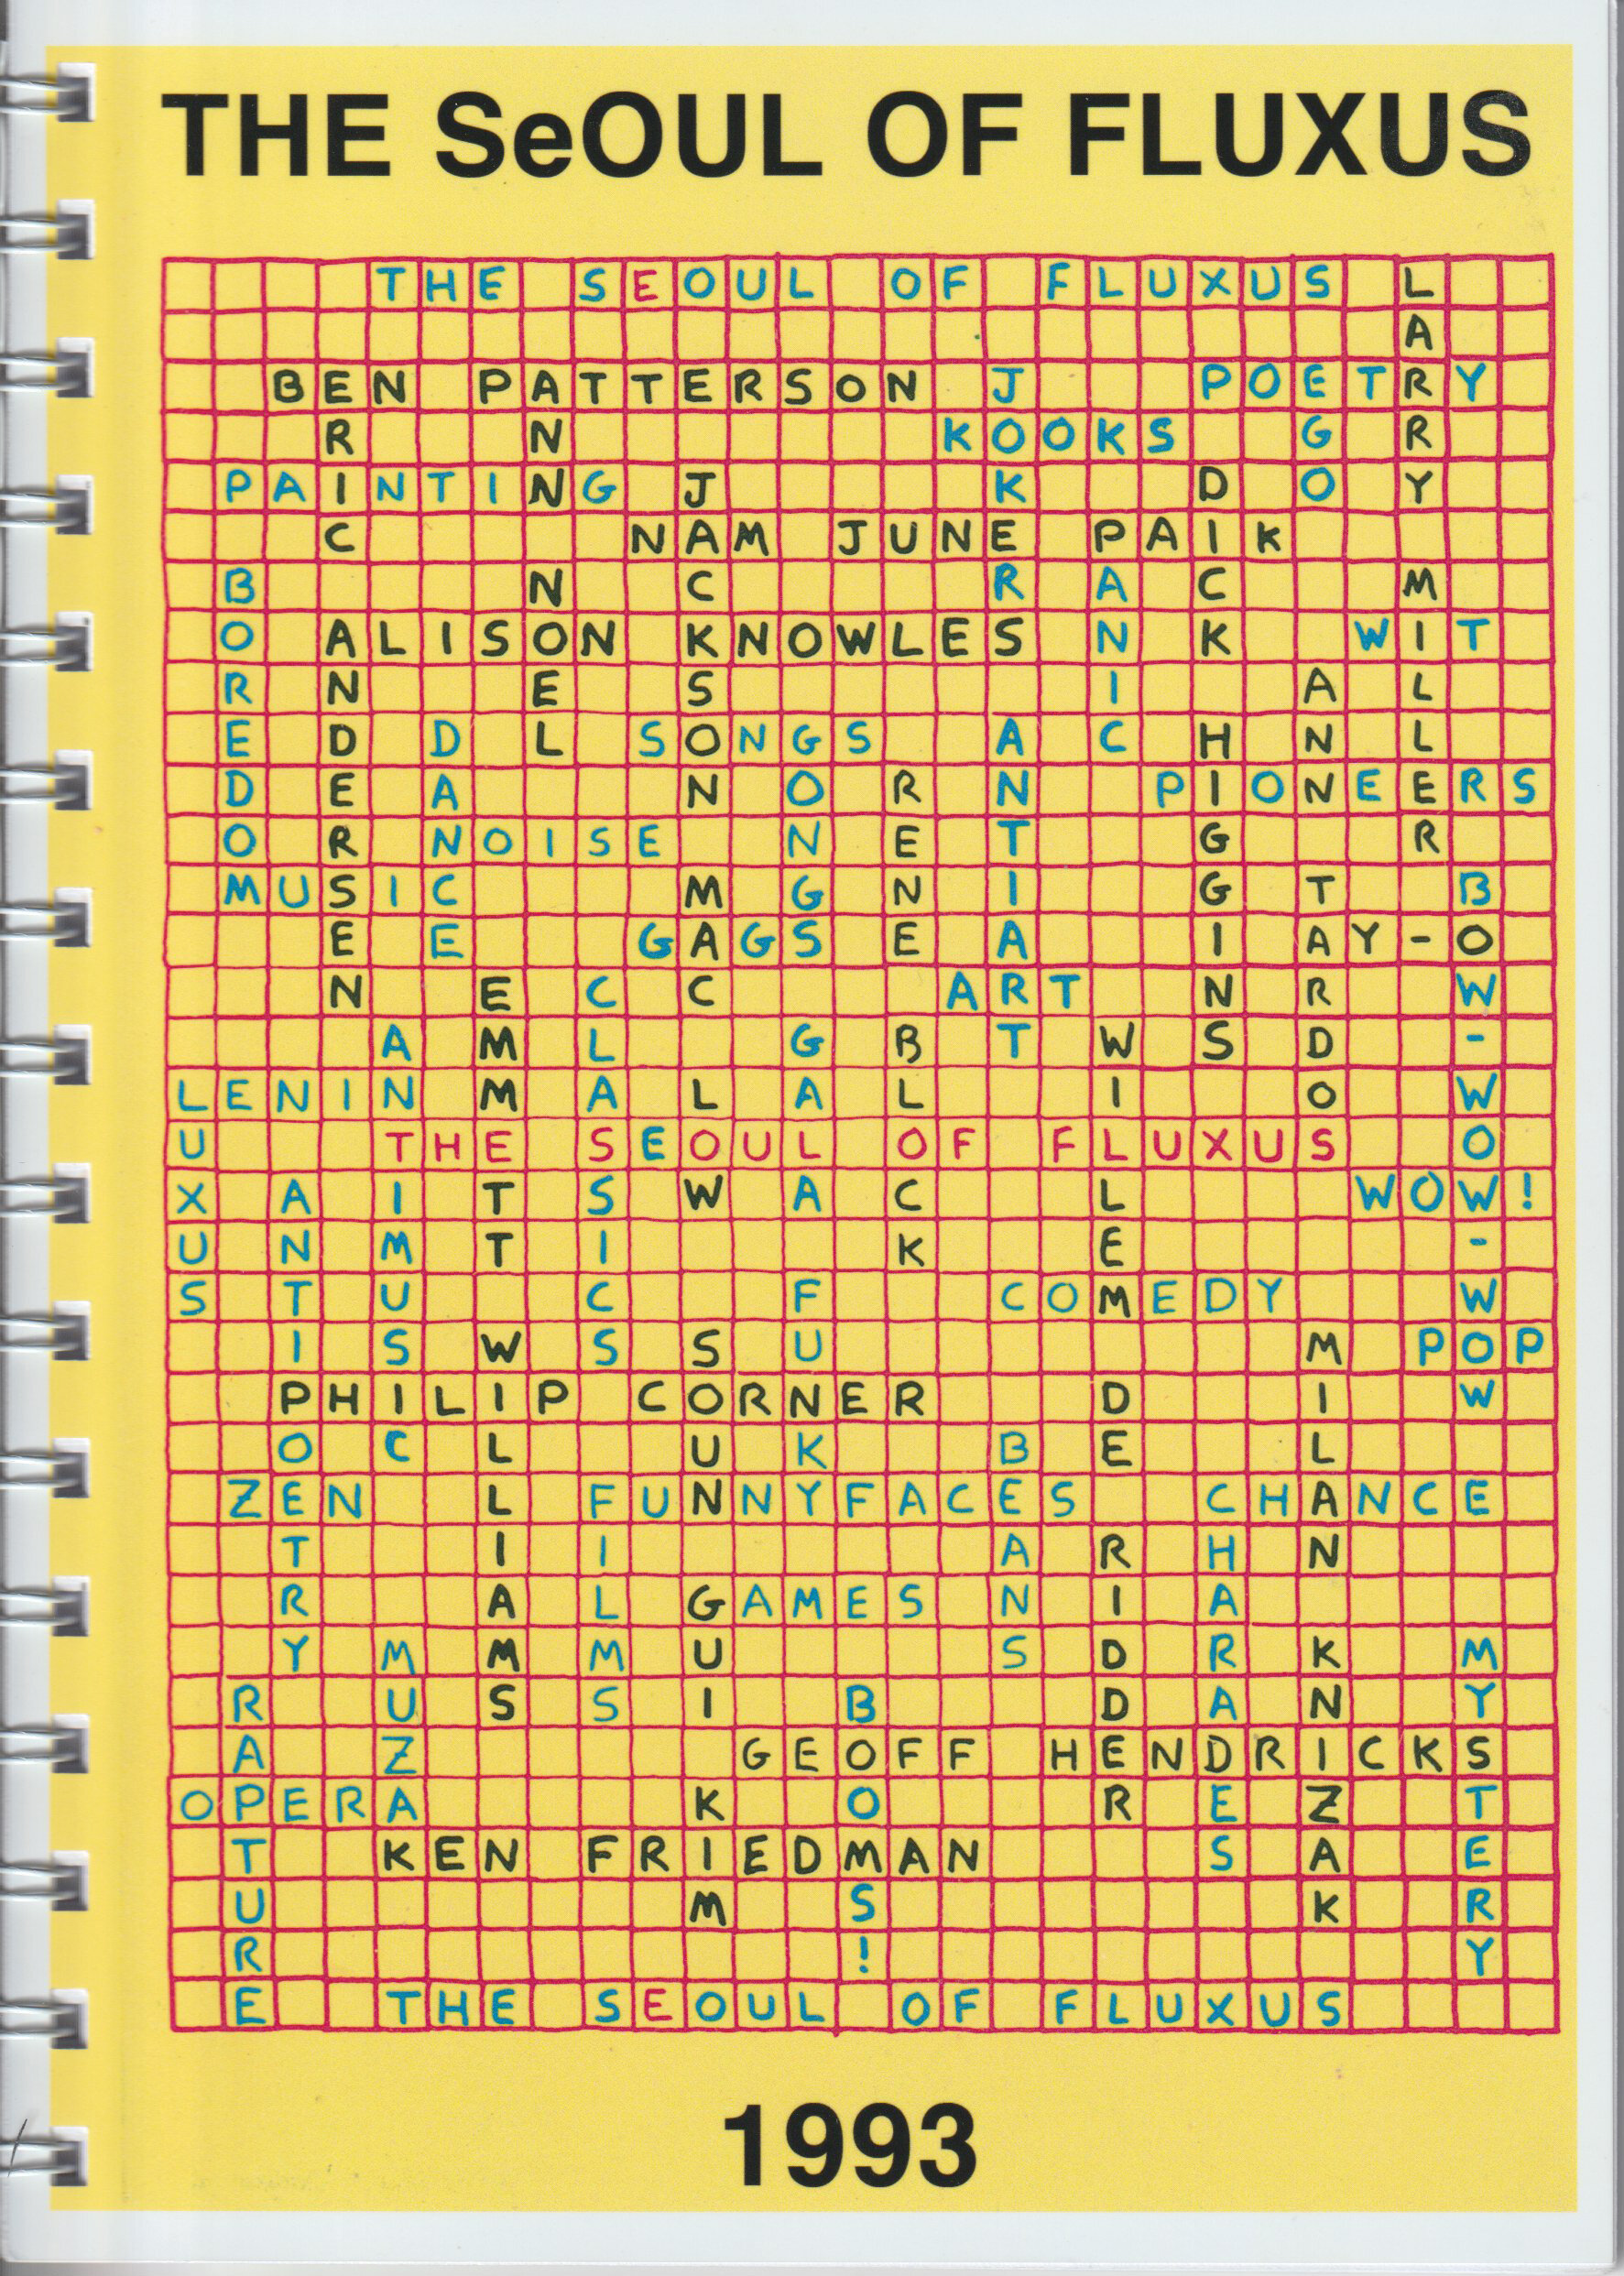 THE SeOUL OF FLUXUS
THE SEOUL OF FLUXUS
LARRY MILLER
BEN PATTERSON
ERIC ANDERSEN
ANN NOEL
JOKERS
POETRY
EGO
KOOKS
PAINTING
JACKSON MAC LOW
DICK HIGGINS
NAM JUNE PAIK
PANIC
BOREDOM
ALISON KNOWLES
WIT
ANN TARDOS
DANCE
SONGS
GONGS
ANTIART
RENE BLOCK
PIONEERS
NOISE
MUSIC
BOW-WOW-WOW
GAGS
AY-O
EMMETT WILLIAMS
CLASSICS
ART
ANTIMUSIC
GALA
WILLEM DE RIDDER
LENIN
LUXUS
THE SEOUL OF FLUXUS
ANTIPOETRY
WOW!
FUNKY
COMEDY
SOUN GUI KIM
MILAN KNIZAK
POP
PHILIP CORNER
BEANS
ZEN
FUNNYFACES
FILMS
CHANCE
CHARADES
GAMES
MUZAK
MYSTERY
RAPTURE
BOOMS!
GEOFF HENDRICKS
OPERA
KEN FRIEDMAN
THE SEOUL OF FLUXUS
1993